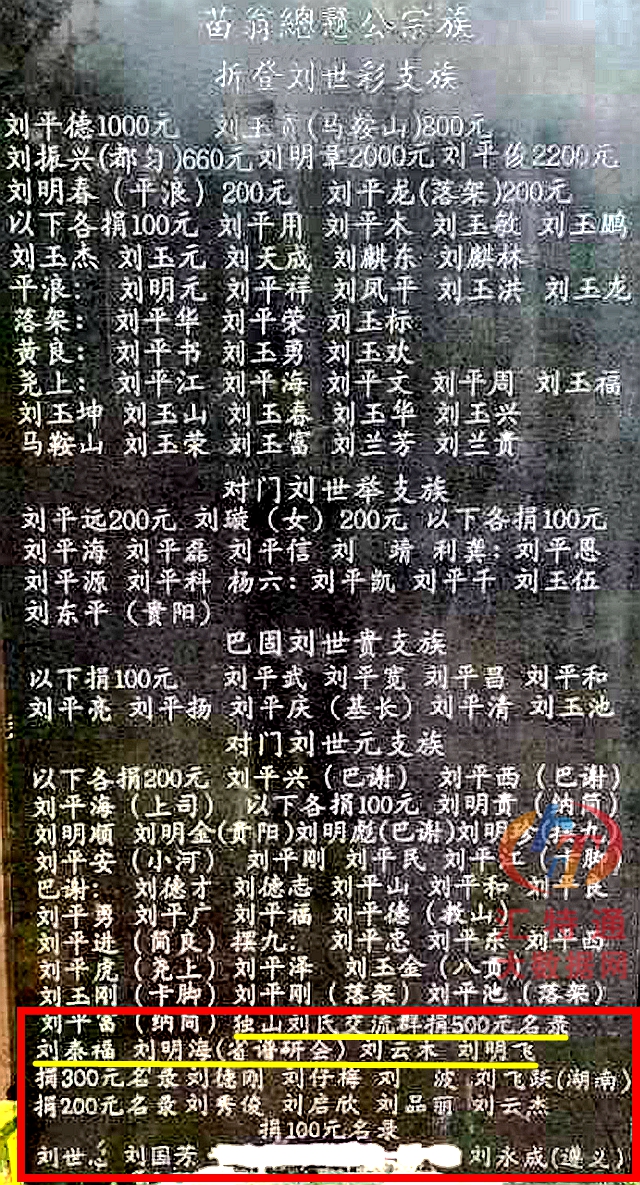 苗翁總題公宗族
折登刘世彩支族
刘平德1000元 刘玉贡(马鞍山)800元
刘振兴(都匀)660元 刘明章2000元 刘平俊2200元
刘明春（平浪）200元 刘平龙(落架)200元
以下各捐100元 刘平用 刘平木 刘玉敏 刘玉鹏
刘玉杰 刘玉元 刘天成 刘麒东 刘麒林
平浪： 刘明元 刘平祥 刘凤平 刘玉洪 刘玉龙
落架： 刘平华 刘平荣 刘玉标
黄良： 刘平书 刘玉勇 刘玉欢
尧上： 刘平江 刘平海 刘平文 刘平周 刘玉福
刘玉坤 刘玉山 刘玉春 刘玉华 刘玉兴
马鞍山 刘玉荣 刘玉富 刘兰芳 刘兰贵
对门刘世举支族
刘平远200元 刘璇（女）200元 以下各捐100元
刘平海 刘平磊 刘平信 刘 靖 利龚：刘平恩
刘平源 刘平科 杨六：刘平凯 刘平千 刘玉伍
刘东平（贵阳）
巴固刘世贵支族
以下捐100元 刘平武 刘平宽 刘平昌 刘平和
刘平亮 刘平扬 刘平庆（基长）刘平清 刘玉池
对门刘世元支族
以下各捐200元 刘平兴（巴谢） 刘平西（巴谢）
刘平海（上司） 以下各捐100元 刘明贵（纳简）
刘明顺 刘明金(贵阳)刘明彪(巴谢)刘明珍(摆九
刘平安（小河） 刘平刚 刘平民 刘平江（卡脚）
巴谢： 刘德才 刘德志 刘平山 刘平和 刘平良
刘平勇 刘平广 刘平福 刘平德（救山）
刘平进（简良）摆九： 刘平忠 刘平东 刘平西
刘平虎（尧上）刘平泽 刘玉金（八贡
刘玉刚（卡脚）刘平刚（落架）刘平池（落架）
刘平富（纳简）独山刘氏交流群捐500元名录
刘泰福 刘明海(省谱研会) 刘云木 刘明飞
捐300元名录刘德刚 刘仔梅 刘 波 刘飞跃(湖南)
捐200元名录刘秀俊 刘启欣 刘品丽 刘云杰
捐100元名录
刘世 刘国芳 刘永成(遵义)
汇特通
大数据网